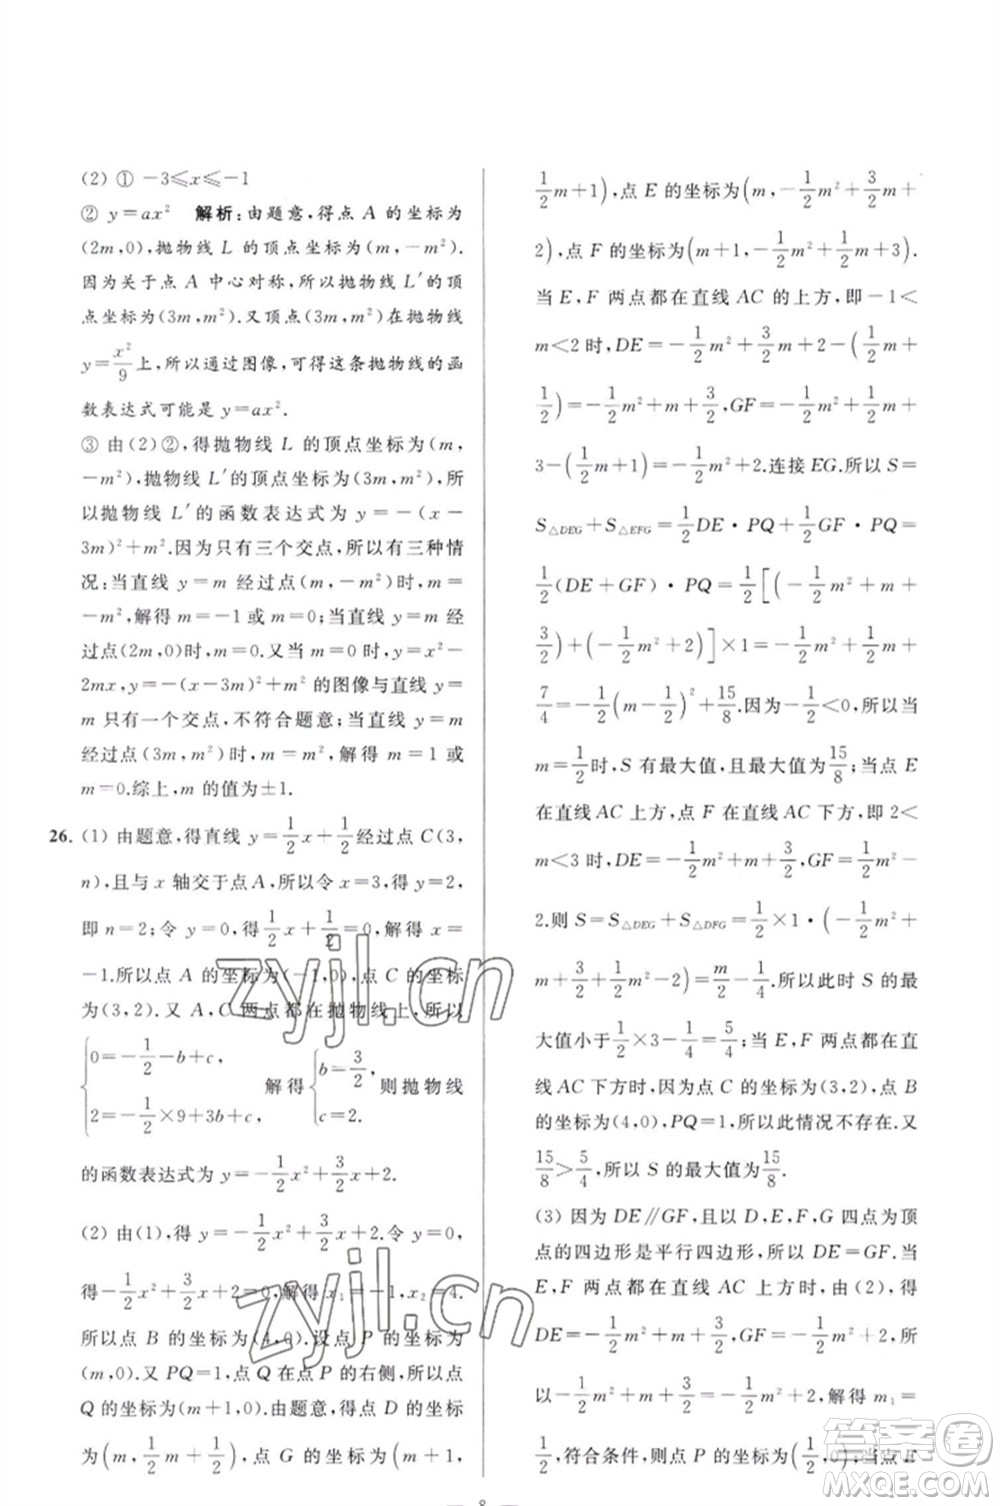 (2) ① −3≤x≤−1
② y=ax² 解析:由题意,得点 A 的坐标为
(2m,0),抛物线 L 的顶点坐标为(m,−m²).
因为关于点 A 中心对称,所以抛物线 L′的顶
点坐标为(3m,m²).又顶点(3m,m²)在抛物线
y=x²/9上,所以通过图像,可得这条抛物线的函
数表达式可能是 y=ax².
③ 由(2)②,得抛物线 L 的顶点坐标为(m,
−m²),抛物线 L′的顶点坐标为(3m,m²),所
以抛物线 L′的函数表达式为 y=−(x−
3m)²+m².因为只有三个交点,所以有三种情
况:当直线 y=m 经过点(m,−m²)时,m=
−m²,解得 m=−1 或 m=0;当直线 y=m 经
过点(2m,0)时,m=0.因为当 m=0 时,y=x²−
2mx,y=−(x−3m)²+m² 的图像与直线 y=
m 只有一个交点,不符合题意;当直线 y=m
经过点(3m,m²)时,m=m²,解得 m=1 或
m=0.综上,m 的值为±1.
26. (1) 由题意,得直线 y=1/2x+1/2经过点 C(3,
n),且与 x 轴交于点 A,所以令 x=3,得 y=2,
即 n=2;令 y=0,得1/2x+1/2=0,解得 x=
−1.所以点 A 的坐标为(−1,0),点 C 的坐标
为(3,2).又 A,C 两点都在抛物线上,所以
{0=−1/2−b+c, 2=−1/2×9+3b+c, 解得{b=3/2, c=2. 则抛物线
的函数表达式为 y=−1/2x²+3/2x+2.
(2) 由(1),得 y=−1/2x²+3/2x+2.令 y=0,
得−1/2x²+3/2x+2=0,解得 x₁=−1,x₂=4.
所以点 B 的坐标为(4,0).设点 P 的坐标为
(m,0).又 PQ=1,点 Q 在点 P 的右侧,所以点
Q 的坐标为(m+1,0).由题意,得点 D 的坐标
为(m,1/2m+1/2),点 G 的坐标为(m+1,
1/2m+1),点 E 的坐标为(m,−1/2m²+3/2m+
2),点 F 的坐标为(m+1,−1/2m²+1/2m+3).
当 E,F 两点都在直线 AC 的上方,即−1<
m<2 时,DE=−1/2m²+3/2m+2−(1/2m+
1/2)=−1/2m²+m+3/2,GF=−1/2m²+1/2m+
3−(1/2m+1)=−1/2m²+2.连接 EG.所以 S=
S△DEG+S△EFG=1/2DE·PQ+1/2GF·PQ=
1/2(DE+GF)·PQ=1/2[(−1/2m²+m+
3/2)+(−1/2m²+2)]×1=−1/2m²+1/2m+
7/4=−1/2(m−1/2)²+15/8.因为−1/2<0,所以当
m=1/2时,S 有最大值,且最大值为15/8;当点 E
在直线 AC 上方,点 F 在直线 AC 下方,即 2<
m<3 时,DE=−1/2m²+m+3/2,GF=1/2m²−
2.则 S=S△DEG+S△DFG=1/2×1·(−1/2m²+
m+3/2+1/2m²−2)=m/2−1/4.所以此时 S 的最
大值小于1/2×3−1/4=5/4;当 E,F 两点都在直
线 AC 下方时,因为点 C 的坐标为(3,2),点 B
的坐标为(4,0),PQ=1,所以此情况不存在.又
15/8>5/4,所以 S 的最大值为15/8.
(3) 因为 DE∥GF,且以 D,E,F,G 四点为顶
点的四边形是平行四边形,所以 DE=GF.当
E,F 两点都在直线 AC 上方时,由(2),得
DE=−1/2m²+m+3/2,GF=−1/2m²+2,所
以−1/2m²+m+3/2=−1/2m²+2,解得 m₁=
1/2,符合条件,则点 P 的坐标为(1/2,0);当点 E
8
zyjl.cn
zyjl.cn
答案圈
MXQE.COM